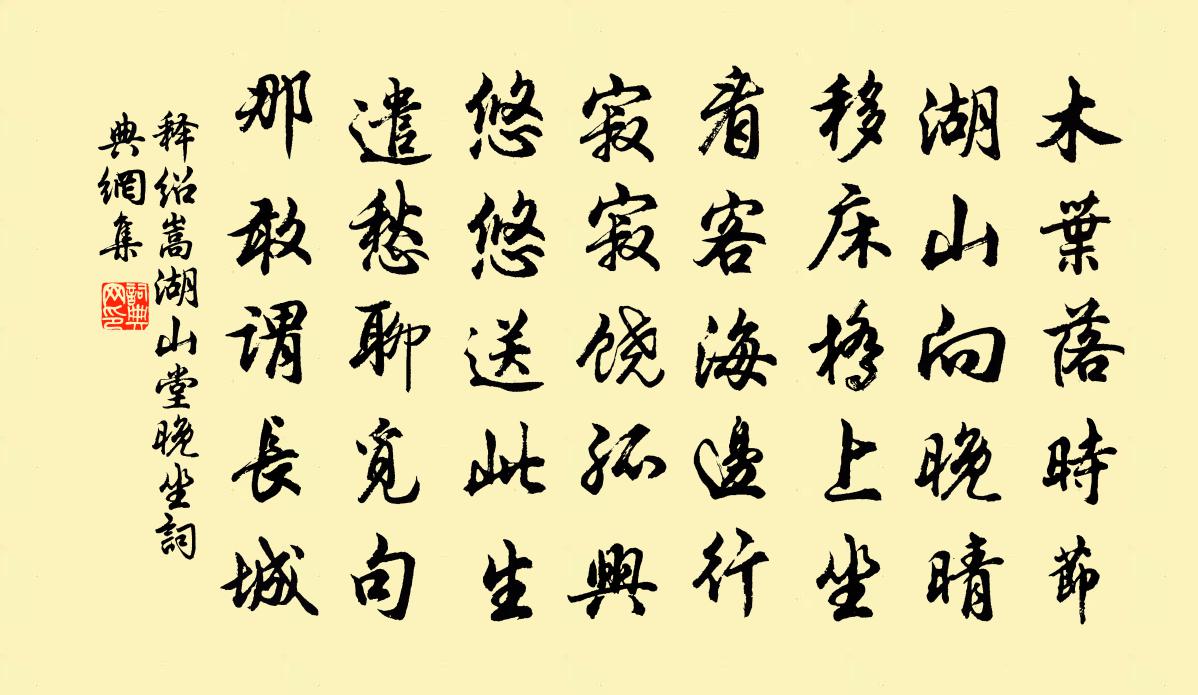 木葉落時節
湖山向晚晴
移床橋上坐
看客海邊行
寂寂饒孤興
悠悠送此生
遣愁聊覓句
那敢謂長城
释紹嵩湖山堂晚坐詞
典網集
詞典
网印